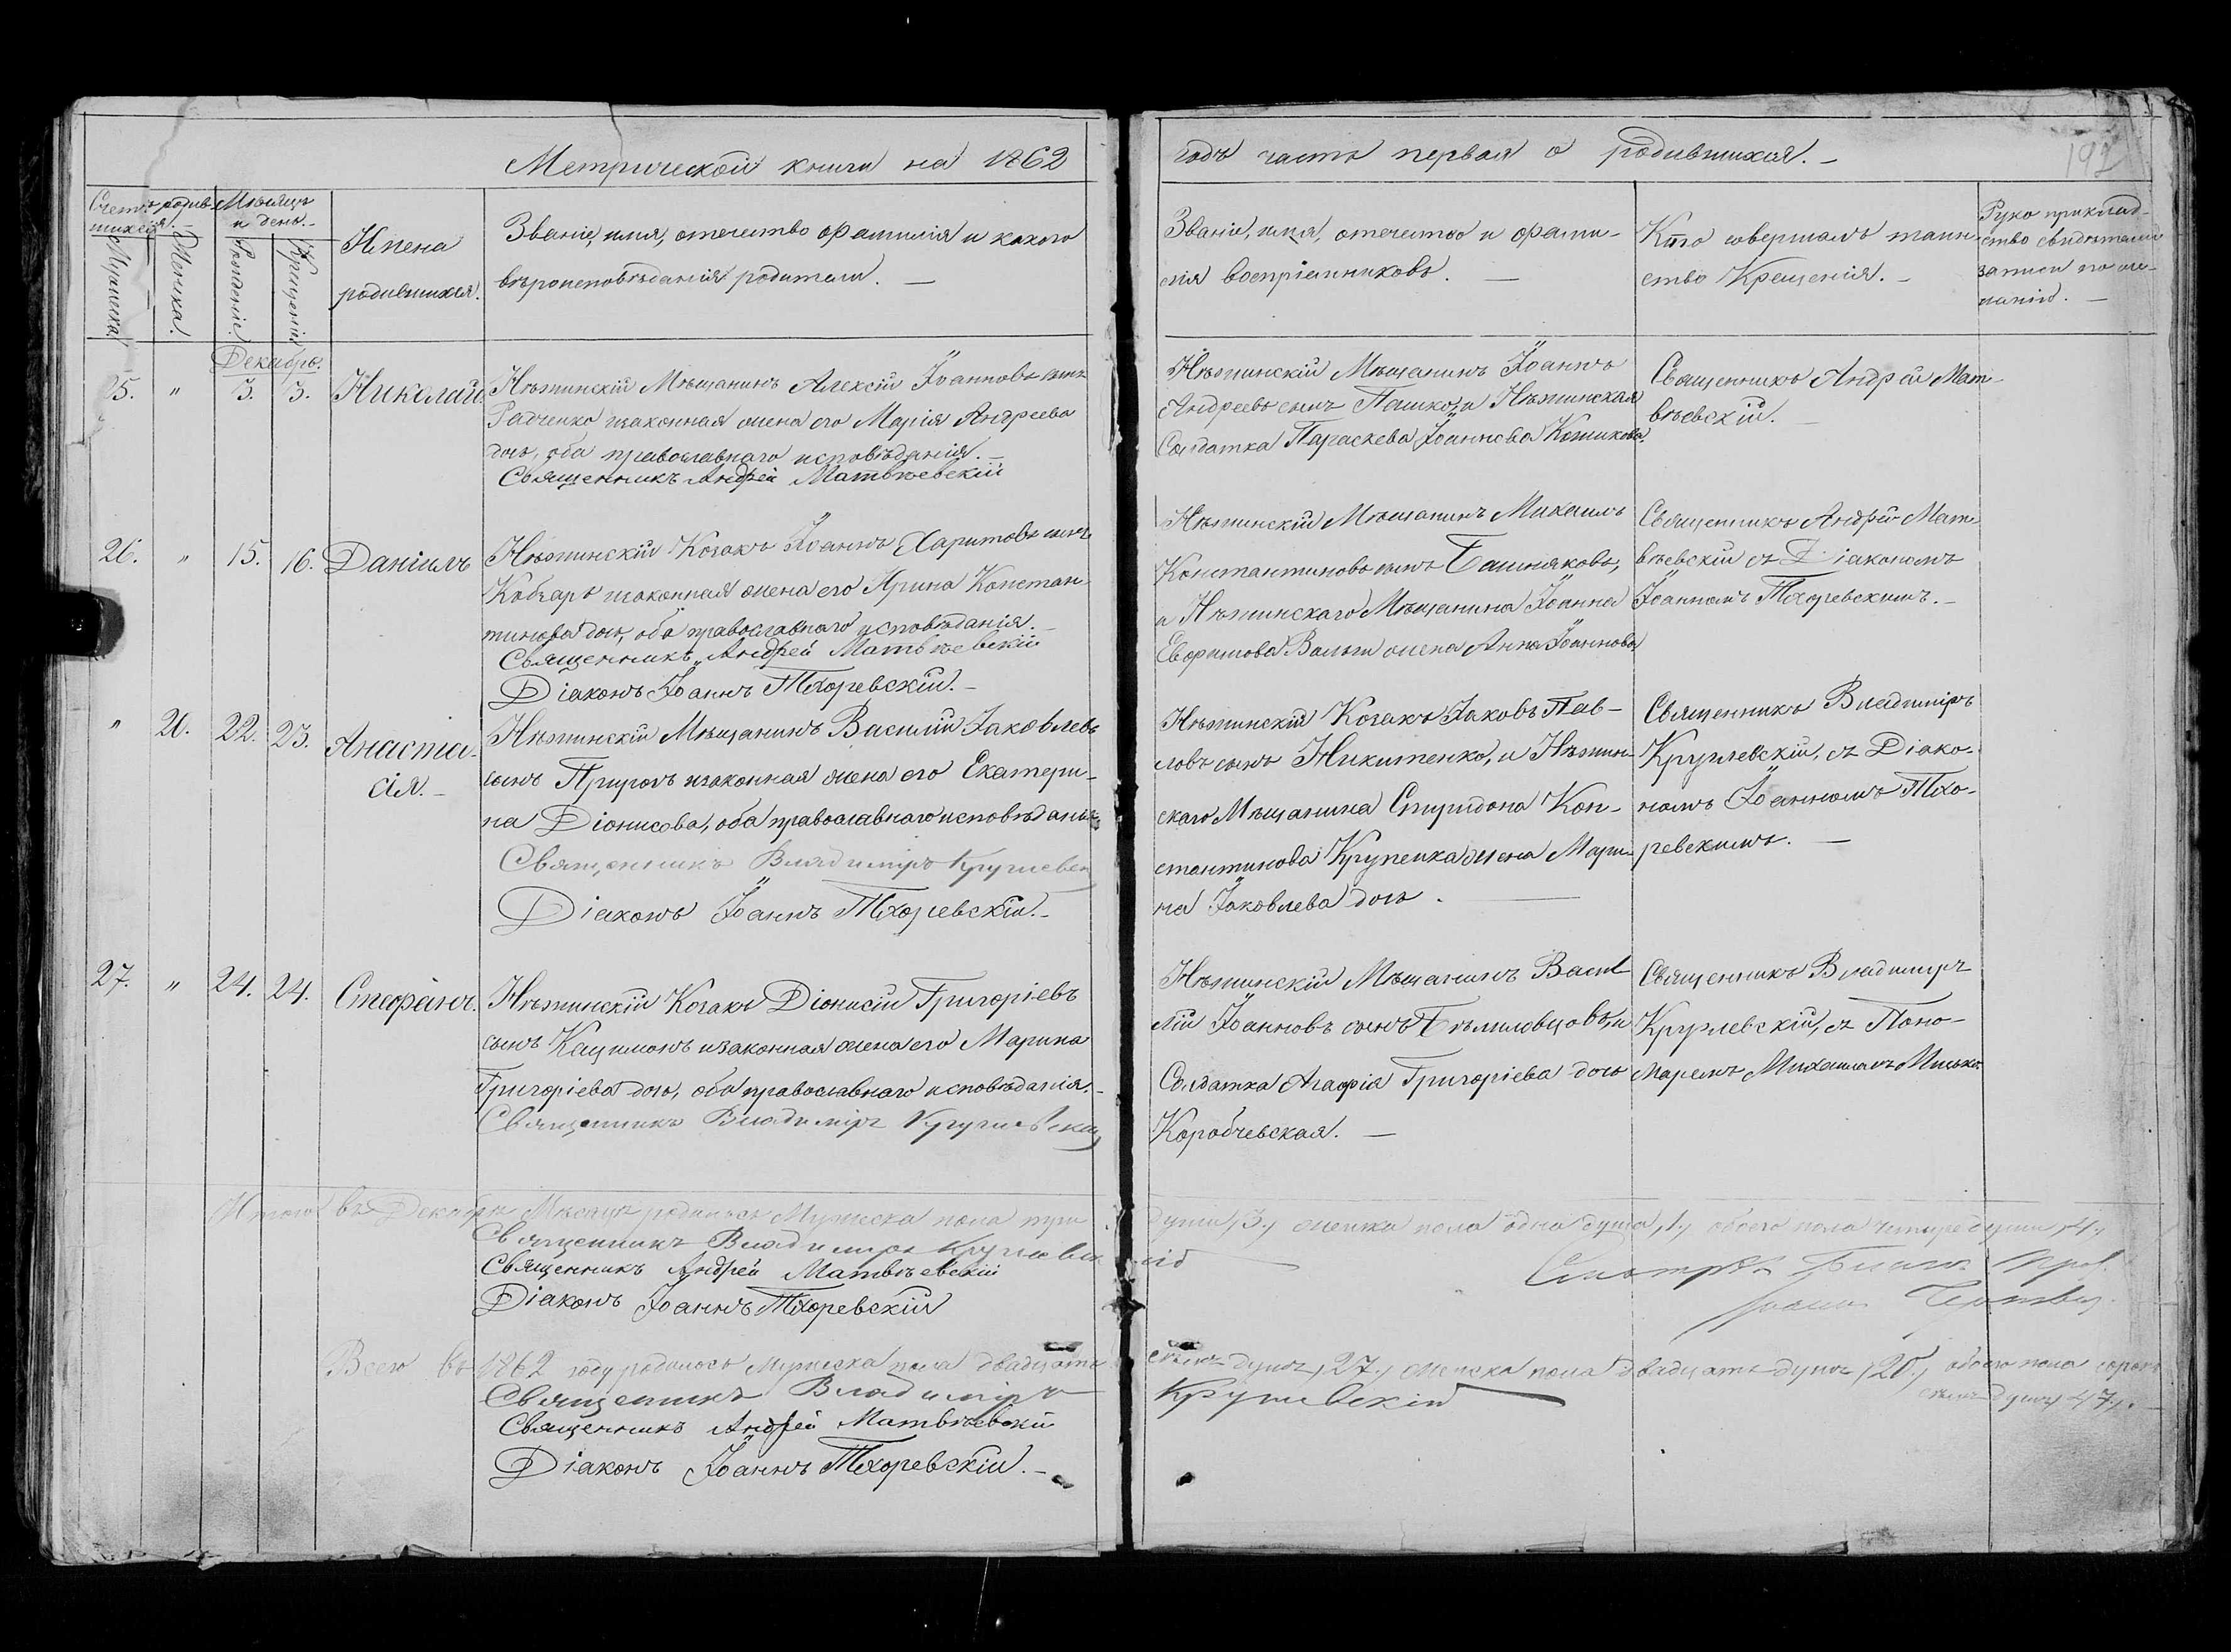 Метрической книги на 1862
годъ часть первая о родившихся. –
192
Счетъ родив-
шихся. –
Мужеска.
Женска.
Мѣсяцъ
и день. –
Рожденія.
Крещенія.
Имена
родившихся.
Званіе, имя, отечество фамилія и какого
вѣроисповѣданія родители. —
Званіе, имя, отечество и фами-
лія воспріемниковъ. —
Кто совершалъ таин-
ство Крещенія. –
Руко приклад-
ство свидѣтелей
записи по же-
ланію. –
Декабрь.
25. " 3. 3. Николай.
Нѣжинскій Мѣщанинъ Алексій Іоанновъ сынъ
Радченко изаконная жена его Марія Андреева
дочь, оба православнаго исповѣданія. –
Священникъ Андрей Матвѣевскій
Нѣжинскій Мѣщанинъ Іоаннъ
Андреевъ сынъ Пашко, и Нѣжинская
Солдатка Параскева Іоаннова Кошикова
Священникъ Андрей Мат-
вѣевскій. –
26. " 15. 16. Даніилъ
Нѣжинскій Козакъ Іоаннъ Харитовъ сынъ
Кобзарь изаконная жена его Ирина Констан-
тинова дочь, оба православнаго исповѣданія. –
Священникъ Андрей Матвѣевскій
Діаконъ Іоаннъ Тхоревскій. –
Нѣжинскій Мѣщанинъ Михаилъ
Константиновъ сынъ Башняковъ,
и Нѣжинскаго Мѣщанина Іоанна
Евфимова жена Анна Іоаннова
Священникъ Андрей Мат-
вѣевскій съ Діакономъ
Іоанномъ Тхоревскимъ. –
" 20. 22. 23. Анаста-
сія. –
Нѣжинскій Мѣщанинъ Василій Іаковлевъ
сынъ изаконная жена его Екатери-
на Діонисова, оба православнаго исповѣданія
Священникъ Владиміръ Круглевск
Діаконъ Іоаннъ Тхоревскій. –
Нѣжинскій Козакъ Іаковъ Пав-
ловъ сынъ Никитенко, и Нѣжин-
скаго Мѣщанина Спиридона Кон-
стантинова Крупенка жена Мари-
на Іаковлева дочь. —
Священникъ Владиміръ
Круглевскій, съ Діако-
номъ Іоанномъ Тхо-
ревскимъ. —
27. " 24. 24. Стефанъ.
Нѣжинскій Козакъ Діонисій Григоріевъ
сынъ Кацимонъ изаконная жена его Марина
Григоріева дочь, оба православнаго исповѣданія. –
Священникъ Владиміръ Круглевскій
Нѣжинскій Мѣщанинъ Васи-
лій Іоанновъ сынъ Бѣлиловцовъ, и
Солдатка Агафія Григоріева дочь
Коробчевская. —
Священникъ Владиміръ
Круглевскій, съ Поно-
маремъ Михаиломъ Мисько.
Итого въ Декабрѣ Мѣсяцѣ родилось Мужеска пола три
души, 3, женска пола одна душа, 1, обоего пола четыре души, 4,
Священникъ Владиміръ Круглевскій
Священникъ Андрей Матвѣевскій
Діаконъ Іоаннъ Тхоревскій
Смотрѣлъ Благ.
Всего въ 1862 году родилось Мужеска пола двадцать
семь душъ, 27, женска пола двадцать душъ, 20, обоего пола сорокъ
семь душъ, 47. –
Священникъ Владиміръ
Круглевскій
Священникъ Андрей Матвѣевскій
Діаконъ Іоаннъ Тхоревскій. –